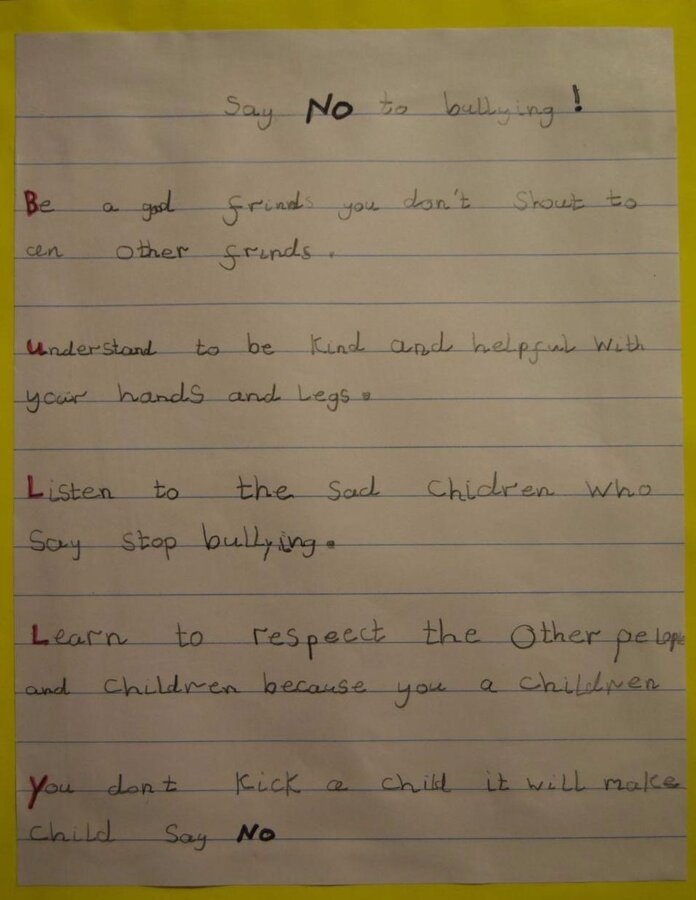 Say NO to bullying!
Be a good frinds you don't shout to
an other frinds.
Understand to be kind and helpful with
your hands and Legs.
Listen to the sad chidren who
Say stop bullying.
Learn to respect the Other pelople
and children because you a children
You dont kick a child it will make
child say NO